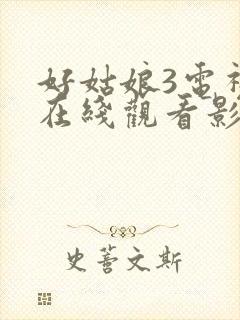 好姑娘3電視
在綫觀看影
史蕓文斯